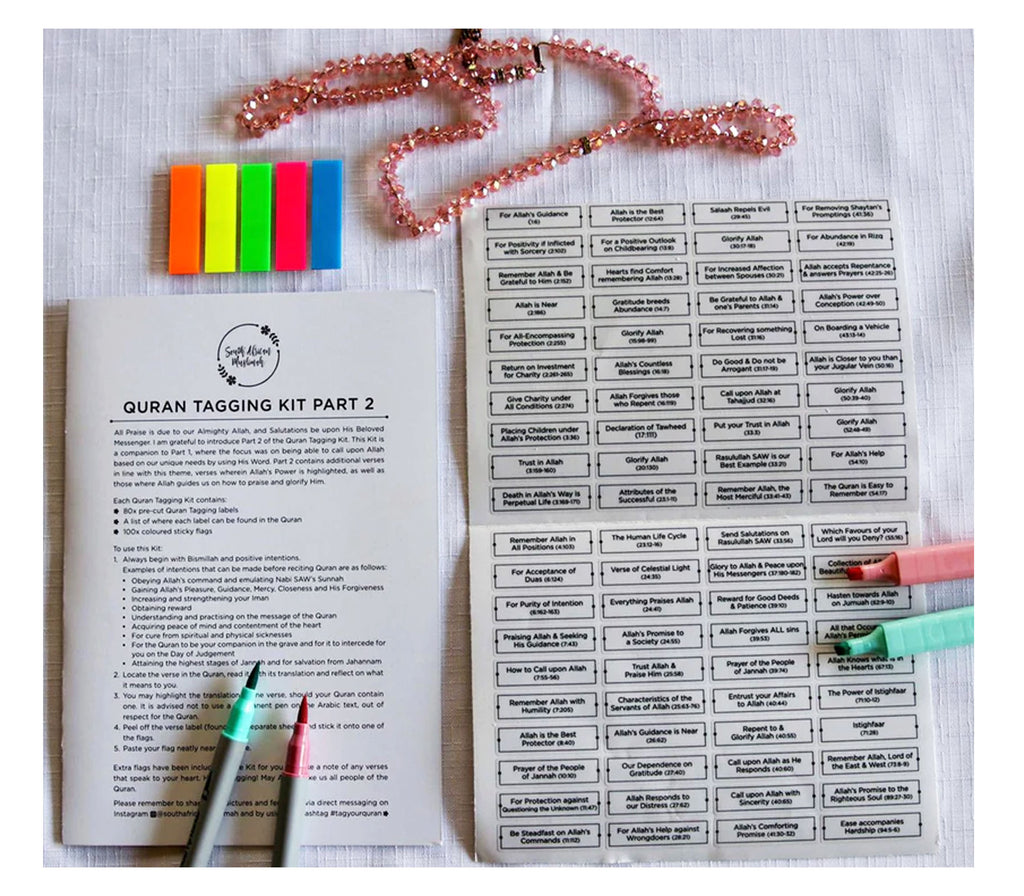 South African
Muslimah
QURAN TAGGING KIT PART 2
All Praise is due to our Almighty Allah, and Salutations be upon His Beloved
Messenger. I am grateful to introduce Part 2 of the Quran Tagging Kit. This Kit is
a companion to Part 1, where the focus was on being able to call upon Allah
based on our unique needs by using His Word. Part 2 contains additional verses
in line with this theme, verses wherein Allah's Power is highlighted, as well as
those where Allah guides us on how to praise and glorify Him.
Each Quran Tagging Kit contains:
80x pre-cut Quran Tagging labels
A list of where each label can be found in the Quran
100x coloured sticky flags
To use this Kit:
1. Always begin with Bismillah and positive intentions.
Examples of intentions that can be made before reciting Quran are as follows:
• Obeying Allah's command and emulating Nabi SAW's Sunnah
• Gaining Allah's Pleasure, Guidance, Mercy, Closeness and His Forgiveness
• Increasing and strengthening your Iman
• Obtaining reward
• Understanding and practising on the message of the Quran
• Acquiring peace of mind and contentment of the heart
• For cure from spiritual and physical sicknesses
• For the Quran to be your companion in the grave and for it to intercede for
you on the Day of Judgement
• Attaining the highest stages of Jannah and for salvation from Jahannam
2. Locate the verse in the Quran, read its translation and reflect on what
it means to you.
3. You may highlight the translation verse, should your Quran contain
one. It is advised not to use a pen on Arabic text, out of
respect for the Quran.
4. Peel off the verse label separate stick it onto one of
the flags.
5. Paste your flag neatly
Extra flags have been Kit for you a note of any verses
that speak to your heart. us all people of the
Quran.
Please remember to pictures and via direct messaging on
Instagram and by #tagyourquran
For Allah's Guidance
(1:6)
For Positivity if Inflicted
with Sorcery (2:102)
Remember Allah & Be
Grateful to Him (2:152)
Allah is Near
(2:186)
For All-Encompassing
Protection (2:255)
Return on Investment
for Charity (2:261-265)
Give Charity under
All Conditions (2:274)
Placing Children under
Allah's Protection (3:36)
Trust in Allah
(3:159-160)
Death in Allah's Way is
Perpetual Life (3:169-171)
Allah is the Best
Protector (12:64)
For a Positive Outlook
on Childbearing (13:8)
Hearts find Comfort
remembering Allah (13:28)
Gratitude breeds
Abundance (14:7)
Glorify Allah
(15:98-99)
Allah's Countless
Blessings (16:18)
Allah Forgives those
who Repent (16:119)
Declaration of Tawheed
(17:111)
Glorify Allah
(20:130)
Attributes of the
Successful (23:1-11)
Salaah Repels Evil
(29:45)
Glorify Allah
(30:17-18)
For Increased Affection
between Spouses (30:21)
Be Grateful to Allah &
one's Parents (31:14)
For Recovering something
Lost (31:16)
Do Good & Do not be
Arrogant (31:17-19)
Call upon Allah at
Tahajjud (32:16)
Put your Trust in Allah
(33:3)
Rasulullah SAW is our
Best Example (33:21)
Remember Allah, the
Most Merciful (33:41-43)
For Removing Shaytan's
Promptings (41:36)
For Abundance in Rizq
(42:19)
Allah accepts Repentance
& answers Prayers (42:25-26)
Allah's Power over
Conception (42:49-50)
On Boarding a Vehicle
(43:13-14)
Allah is Closer to you than
your Jugular Vein (50:16)
Glorify Allah
(50:39-40)
Glorify Allah
(52:48-49)
For Allah's Help
(54:10)
The Quran is Easy to
Remember (54:17)
Remember Allah in
All Positions (4:103)
For Acceptance of
Duas (6:124)
For Purity of Intention
(6:162-163)
Praising Allah & Seeking
His Guidance (7:43)
How to Call upon Allah
(7:55-56)
Remember Allah with
Humility (7:205)
Allah is the Best
Protector (8:40)
Prayer of the People
of Jannah (10:10)
For Protection against
Questioning the Unknown (11:47)
Be Steadfast on Allah's
Commands (11:112)
The Human Life Cycle
(23:12-16)
Verse of Celestial Light
(24:35)
Everything Praises Allah
(24:41)
Allah's Promise to
a Society (24:55)
Trust Allah &
Praise Him (25:58)
Characteristics of the
Servants of Allah (25:63-76)
Allah's Guidance is Near
(26:62)
Our Dependence on
Gratitude (27:40)
Allah Responds to
our Distress (27:62)
For Allah's Help against
Wrongdoers (28:21)
Send Salutations on
Rasulullah SAW (33:56)
Glory to Allah & Peace upon
His Messengers (37:180-182)
Reward for Good Deeds
& Patience (39:10)
Allah Forgives ALL sins
(39:53)
Prayer of the People
of Jannah (39:74)
Entrust your Affairs
to Allah (40:44)
Repent to &
Glorify Allah (40:55)
Call upon Allah as He
Responds (40:60)
Call upon Allah with
Sincerity (40:65)
Allah's Comforting
Promise (41:30-32)
Which Favours of your
Lord will you Deny? (55:16)
Collection of
Hasten towards Allah
on Jumuah (62:9-10)
All that
Allah's
Allah Knows what is in
the Hearts (67:13)
The Power of Istighfaar
(71:10-12)
Istighfaar
(71:28)
Remember Allah, Lord of
the East & West (73:8-9)
Allah's Promise to the
Righteous Soul (89:27-30)
Ease accompanies
Hardship (94:5-6)